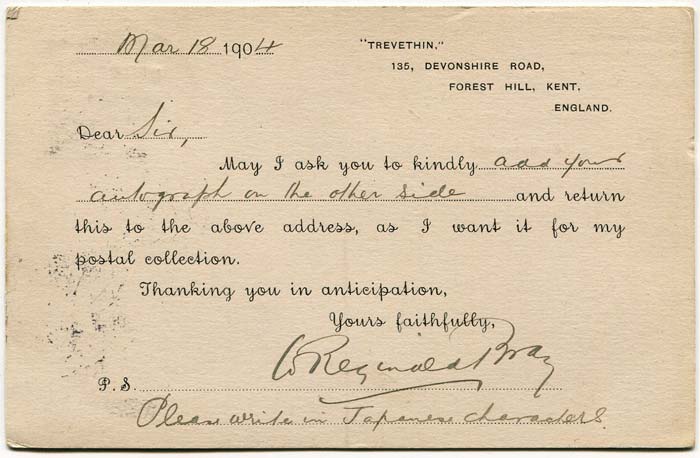 Mar 18 1904
"TREVETHIN,"
135, DEVONSHIRE ROAD,
FOREST HILL, KENT.
ENGLAND.
Dear Sir,
May I ask you to kindly add your
autograph on the other side and return
this to the above address, as I want it for my
postal collection.
Thanking you in anticipation,
Yours faithfully,
W Reginald Bray
P.S.
Please write in Japanese characters.